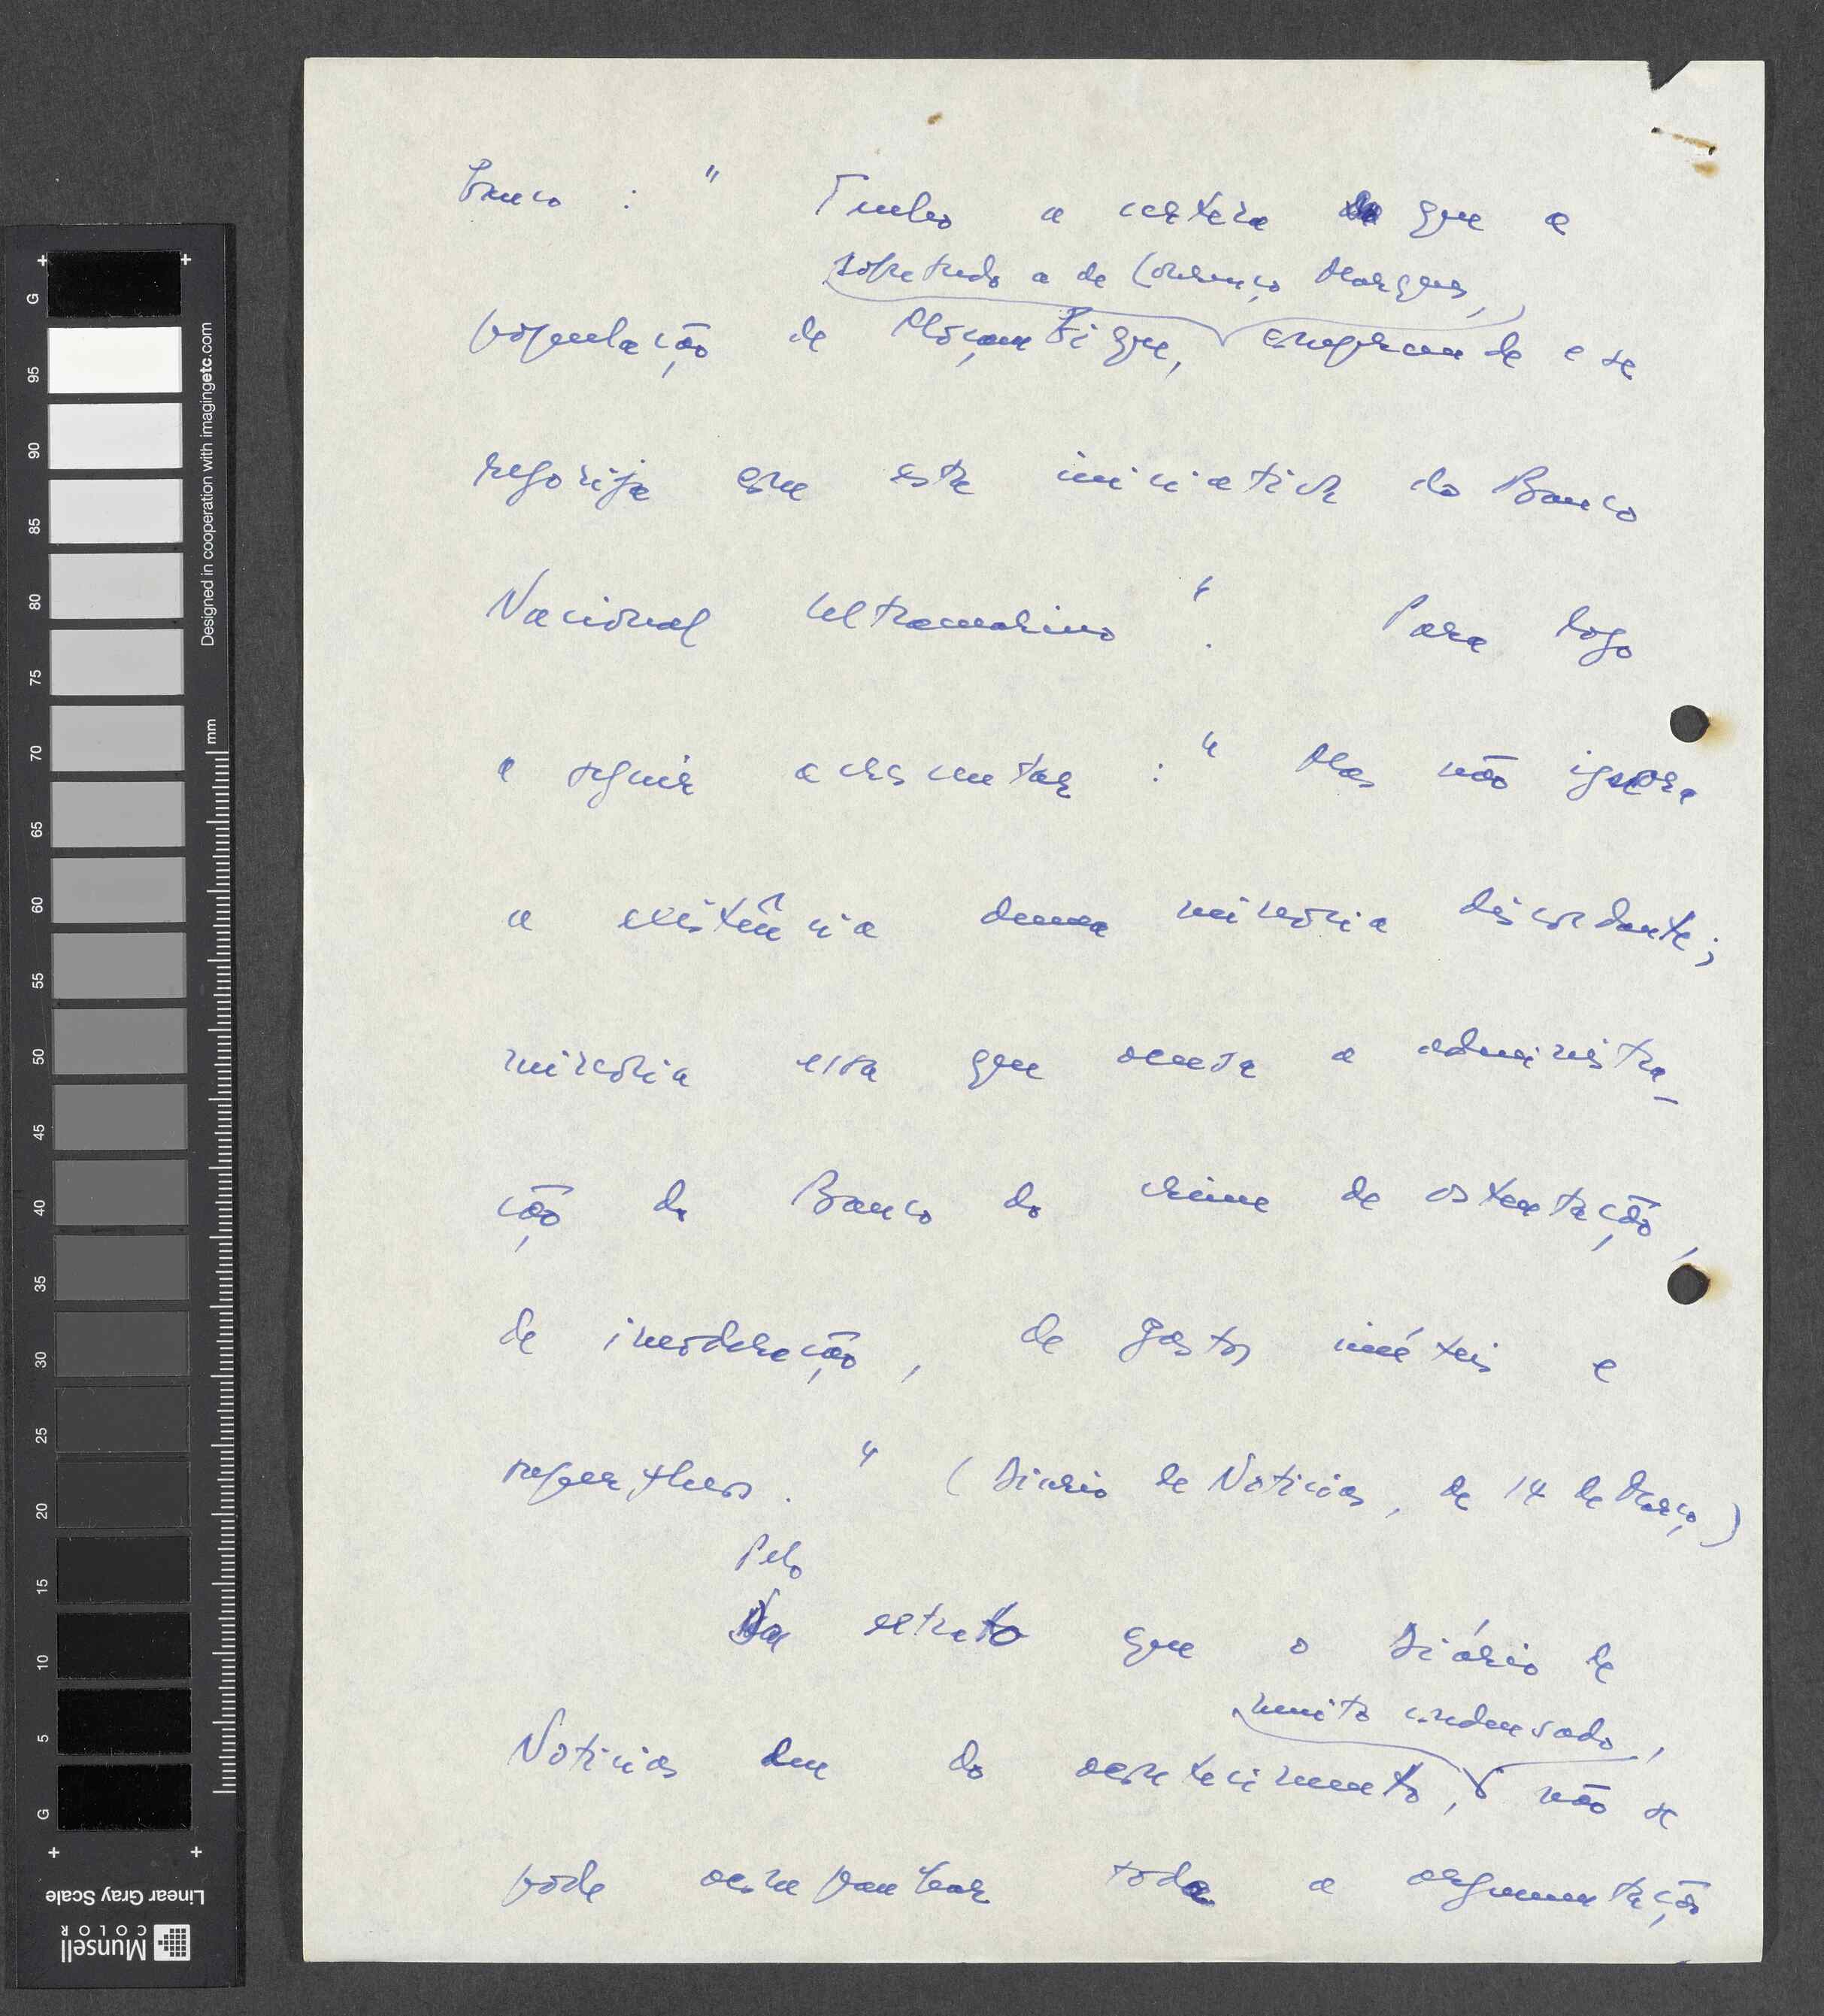 Banco : " Tenho a certeza que a
sobretudo a de Lourenço Marques,
população de Moçambique, compreende e se
regozija com esta iniciativa do Banco
Nacional Ultramarino ". Para logo
a seguir acrescentar : " Mas não ignora
a existência duma minoria discordante;
minoria essa que acusa a administra-
ção do Banco do crime de ostentação,
de imoderação, de gastos inúteis e
supérfluos. " (Diário de Notícias, de 14 de Março)
Pelo
extrato que o Diário de
muito condensado,
Notícias deu do acontecimento, não se
pode acompanhar toda a argumentação
G
95
90
85
80
75
70
65
60
55
50
45
40
35
30
25
20
15
10
5
G
mm
Designed in cooperation with imagingetc.com
Linear Gray Scale
Munsell
COLOR